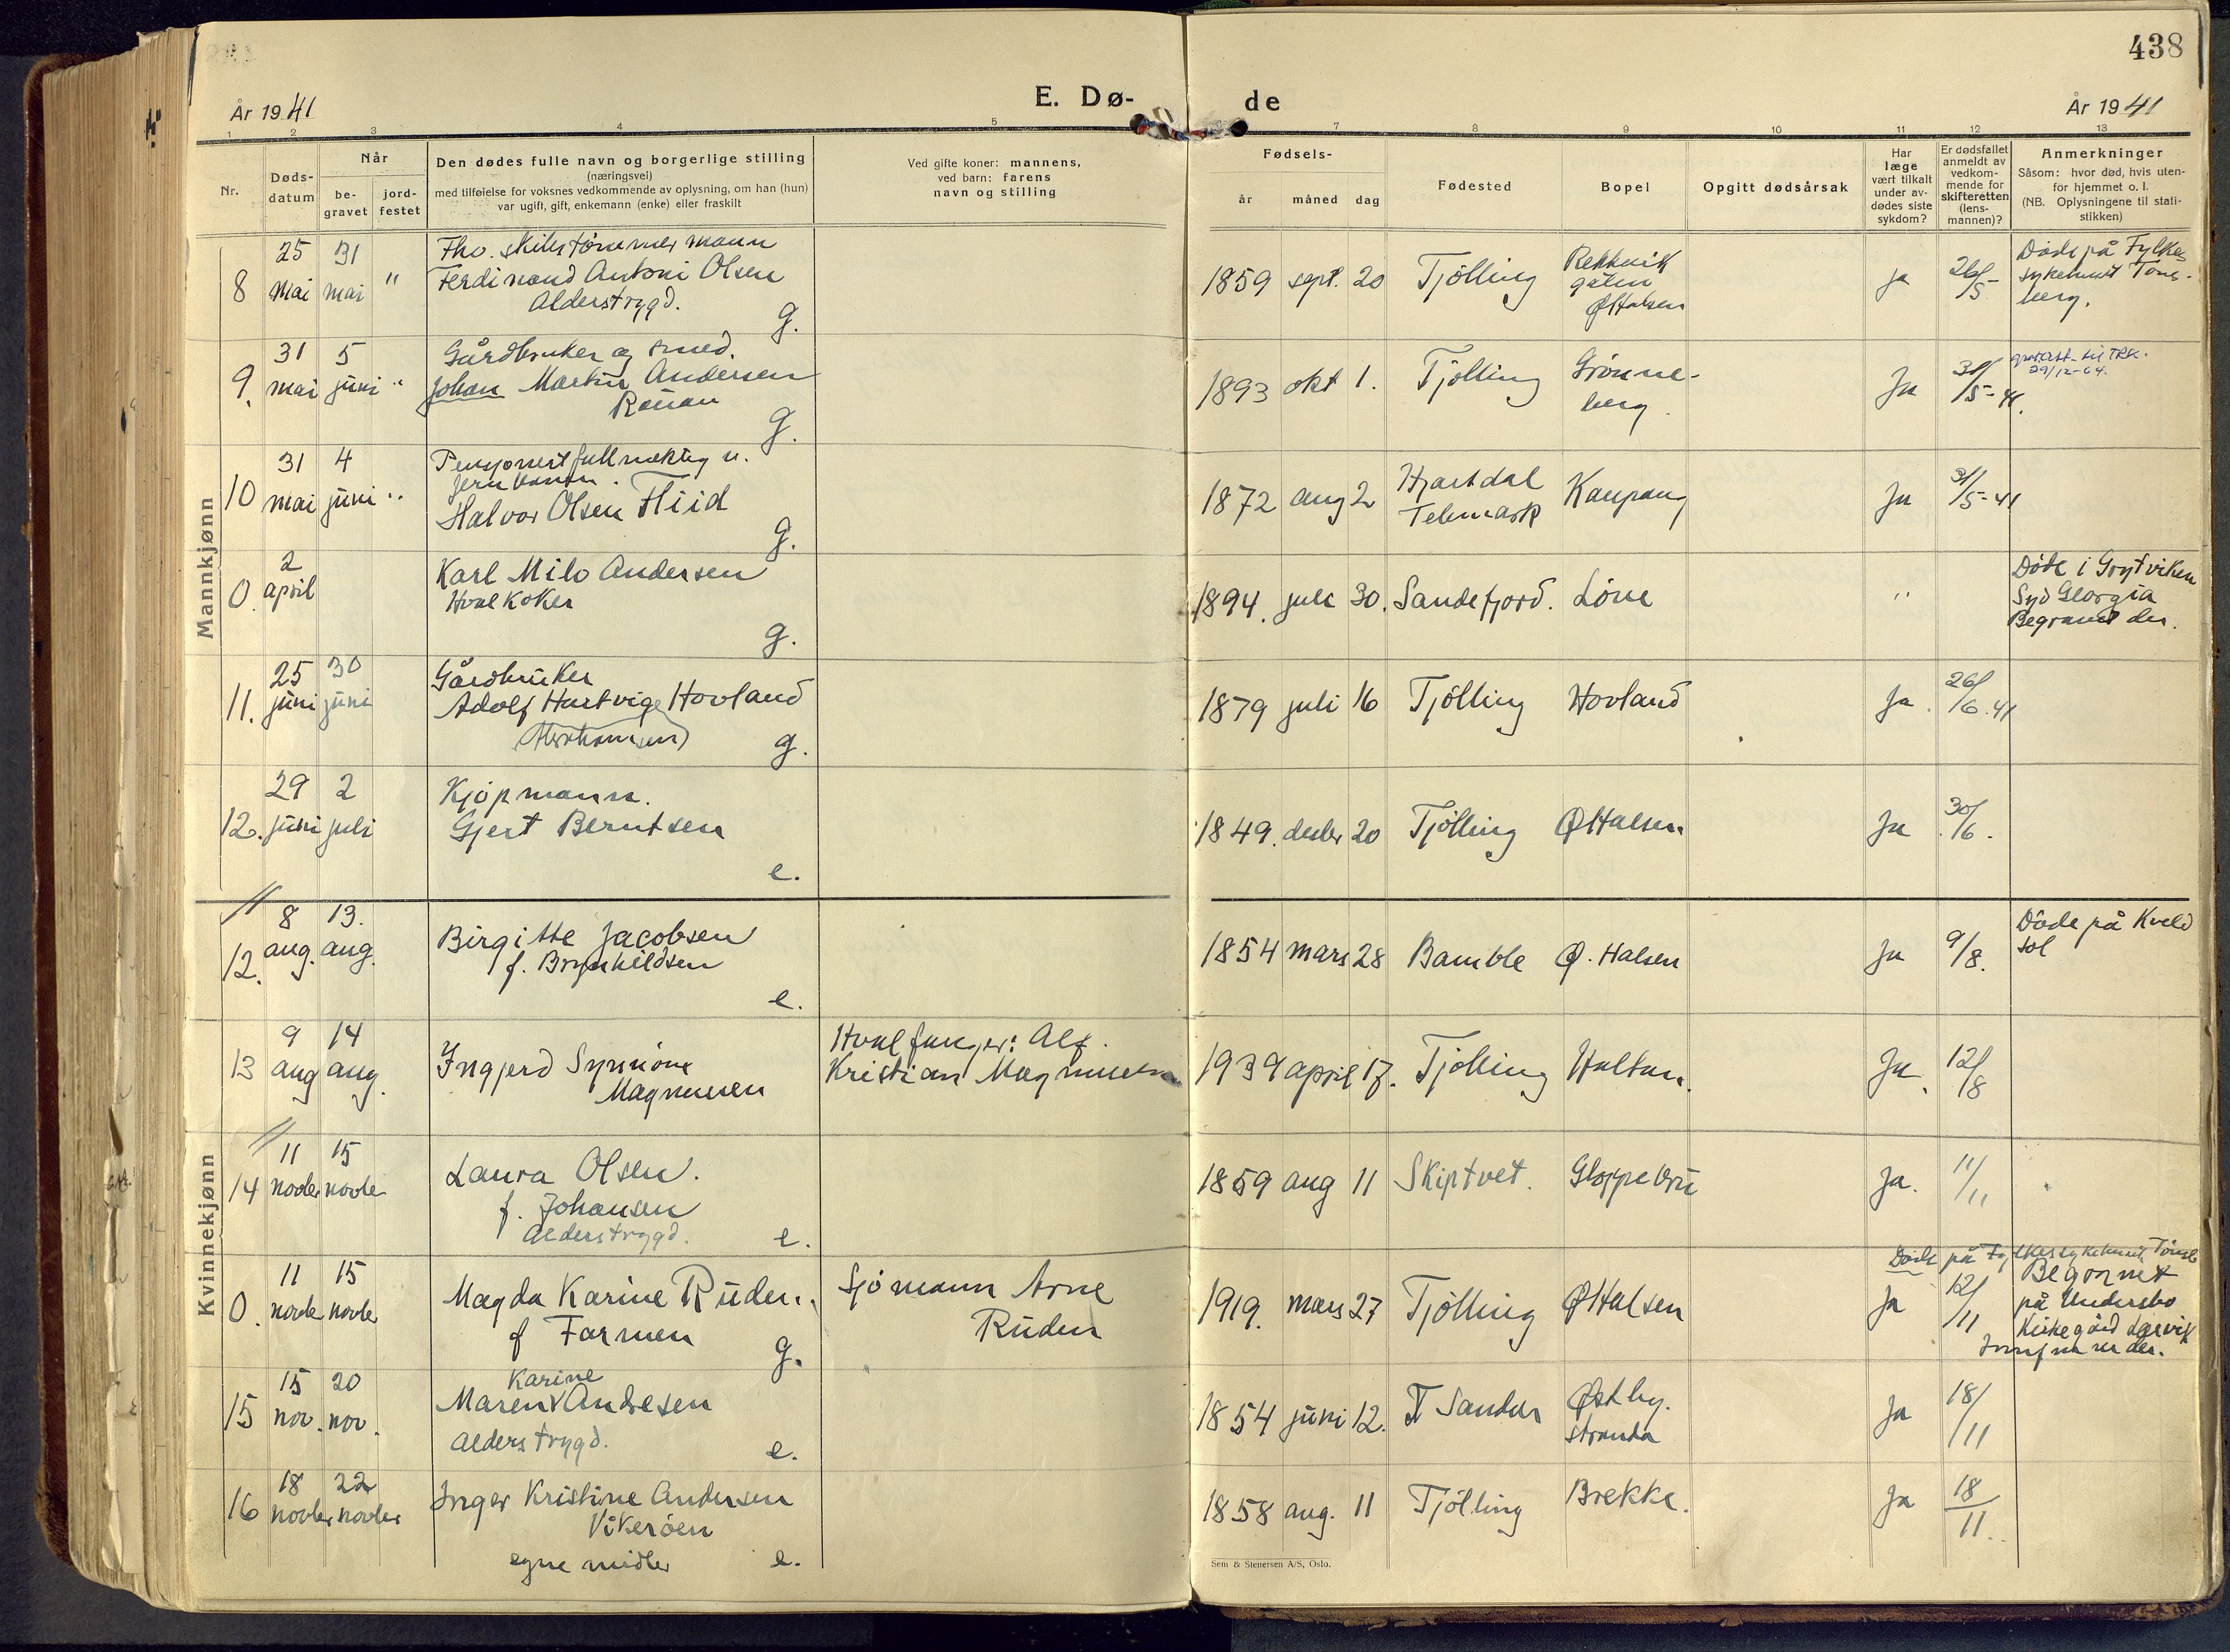 438
År 1941
E. Dø-
de
År 1941
1 2 3 4 5 7 8 9 10 11 12 13
Nr.
Døds-
datum
Når
be-
gravet
jord-
festet
Den dødes fulle navn og borgerlige stilling
(næringsvei)
med tilføielse for voksnes vedkommende av oplysning, om han (hun)
var ugift, gift, enkemann (enke) eller fraskilt
Ved gifte koner: mannens,
ved barn: farens
navn og stilling
Fødsels-
år måned dag
Fødested
Bopel
Opgitt dødsårsak
Har
læge
vært tilkalt
under av-
dødes siste
sykdom?
Er dødsfallet
anmeldt av
vedkom-
mende for
skifteretten
(lens-
mannen)?
Anmerkninger
Såsom: hvor død, hvis uten-
for hjemmet o. l.
(NB. Oplysningene til stati-
stikken)
Mannkjønn
8
25 mai
31 mai
"
Fhv. skibstømmermann
Ferdinand Antoni Olsen
Alderstrygd.
g.
1859 sept. 20
Tjölling
Rekkevik
gaten
ØHalsen
ja
26/5
Döde på Fylkes
sykehuset Töns-
berg.
9.
31 mai
5 juni
"
Gårdbruker og smed.
Johan Martin Andersen
Rauan
g.
1893 okt 1.
Tjölling
Grönne-
berg
Ja
30/5-41.
29/12-64.
10
31 mai
4 juni
"
Pensjonert fullmektig v.
Halvor Olsen Fliid
g.
1872 aug 2
Hjartdal
Telemark
Kaupang
Ja
31/5-41
0.
2 april
Karl Milo Andersen
Hvalkoker
g.
1894. juli 30.
Sandefjord.
Löve
"
Döde i Grytviken
Syd Georgia
Begravet der.
11.
25 juni
30 juni
Gårdbruker
Adolf Hartvig Hovland
(Abrahamsen)
g.
1879 juli 16
Tjölling
Hovland
Ja.
26/6.41
12.
29 juni
2 juli
Kjöpmann.
Gjert Berntsen
e.
1849. desbr 20
Tjölling
ØHalsen
Ja
30/6.
Kvinnekjønn
12.
8 aug.
13. aug.
Birgitte Jacobsen
f. Brynhildsen
e.
1854 mars 28
Bamble
Ø. Halsen
Ja
9/8.
Döde på Kveld
sol
13
9 aug
14 aug.
Ingjerd Synnöve
Magnussen
Hvalfanger: Alf
Kristian Magnussen
1939 april 17.
Tjölling
Haltan.
Ja.
12/8
14
11 novbr
15 novbr
Laura Olsen.
f. Johansen
Alderstrygd.
e.
1859 aug 11
Skiptvet.
Gloppebru
Ja.
11/11
0.
11 novbr
15 novbr
Magda Karine Ruden.
f Farmen
g.
Sjömann Arne
Ruden
1919. mars 27
Tjölling
ØHalsen
Ja
12/11
Döde på Fylkessykehuset, Tönsb
Begravet
på Undersbo
Kirkegård Larvik
15
15 nov.
20 nov.
Karine
Maren Andresen
Alderstrygd.
e.
1854 juni 12.
Østby.
Stranda
Ja
18/11
16
18 novbr
22 novbr
Inger Kristine Andersen
Vikeröen
egne midler
e.
1858 aug. 11
Tjölling
Brekke.
Ja
18/11.
Sem & Stenersen A/S, Oslo.